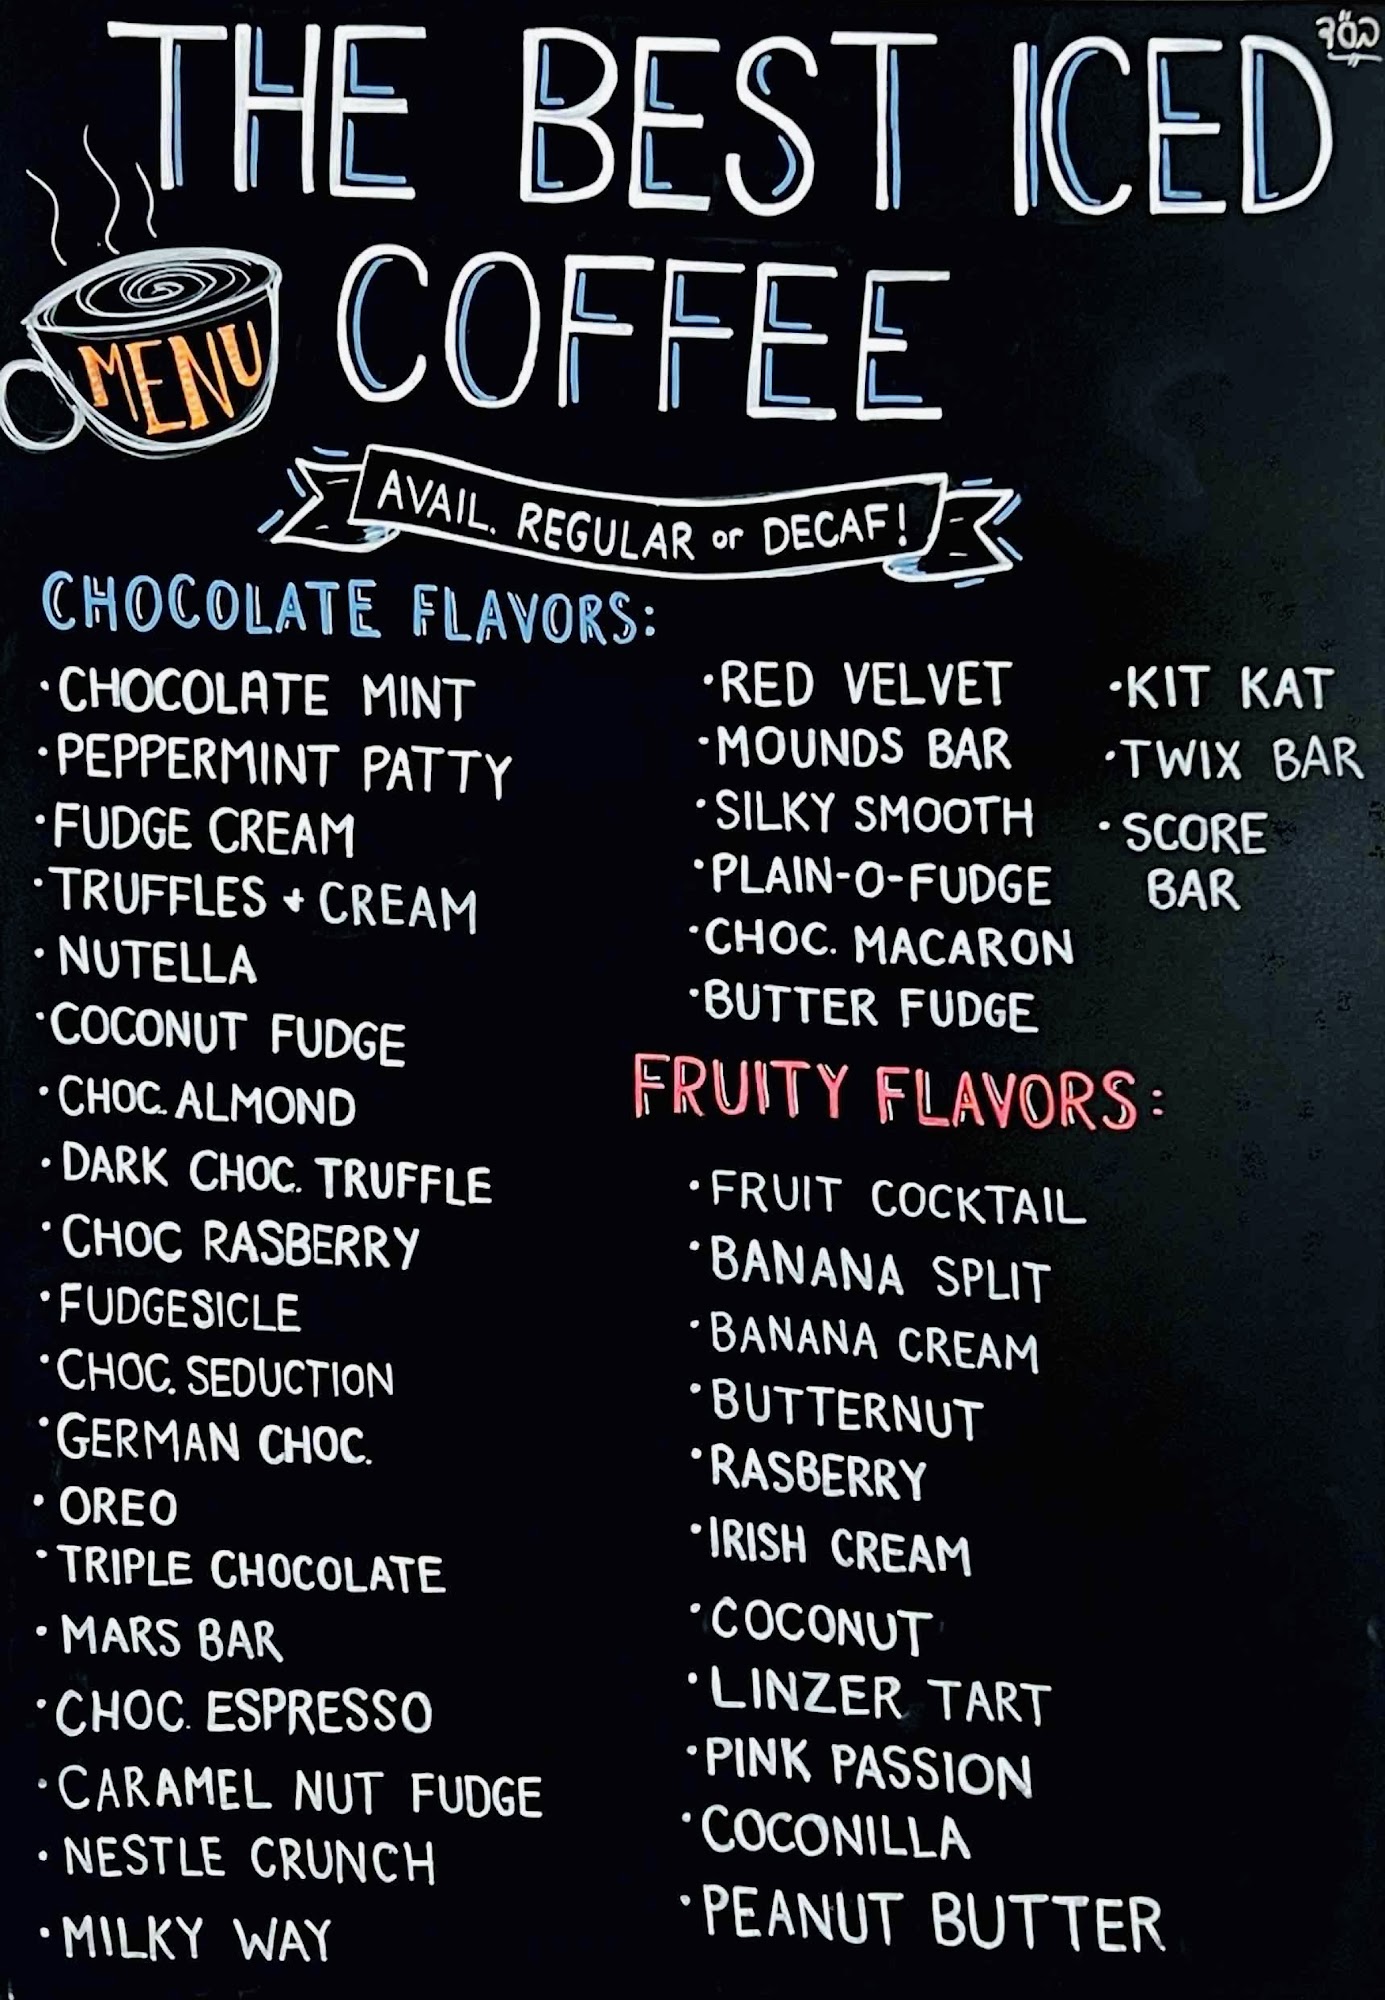 בס"ד
THE BEST ICED
COFFEE
MENU
AVAIL. REGULAR or DECAF!
CHOCOLATE FLAVORS:
·CHOCOLATE MINT
·PEPPERMINT PATTY
·FUDGE CREAM
·TRUFFLES + CREAM
·NUTELLA
·COCONUT FUDGE
·CHOC. ALMOND
·DARK CHOC. TRUFFLE
·CHOC RASBERRY
·FUDGESICLE
·CHOC. SEDUCTION
·GERMAN CHOC.
·OREO
·TRIPLE CHOCOLATE
·MARS BAR
·CHOC. ESPRESSO
·CARAMEL NUT FUDGE
·NESTLE CRUNCH
·MILKY WAY
·RED VELVET
·MOUNDS BAR
·SILKY SMOOTH
·PLAIN-O-FUDGE
·CHOC. MACARON
·BUTTER FUDGE
·KIT KAT
·TWIX BAR
·SCORE
BAR
FRUITY FLAVORS:
·FRUIT COCKTAIL
·BANANA SPLIT
·BANANA CREAM
·BUTTERNUT
·RASBERRY
·IRISH CREAM
·COCONUT
·LINZER TART
·PINK PASSION
·COCONILLA
·PEANUT BUTTER